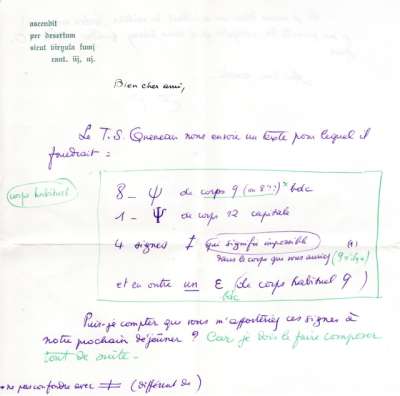 ascendit
per desertum
sicut virgula fumi
cant. iij, vj.
Bien cher ami,
Le T.S. Queneau nous envoie un texte pour lequel il
faudrait :
corps habituel
8 — ψ de corps 9 (ou 8 ?) * bdc
1 — Ψ de corps 12 capitale
4 signes ‡ qui signifie impossible
dans le corps que vous auriez
et en outre un ε (de corps habituel 9)
bdc
Puis-je compter que vous m'apporterez ces signes à
notre prochain déjeuner ? Car je dois le faire composer
tout de suite.
* ne pas confondre avec ≠ (différent de)